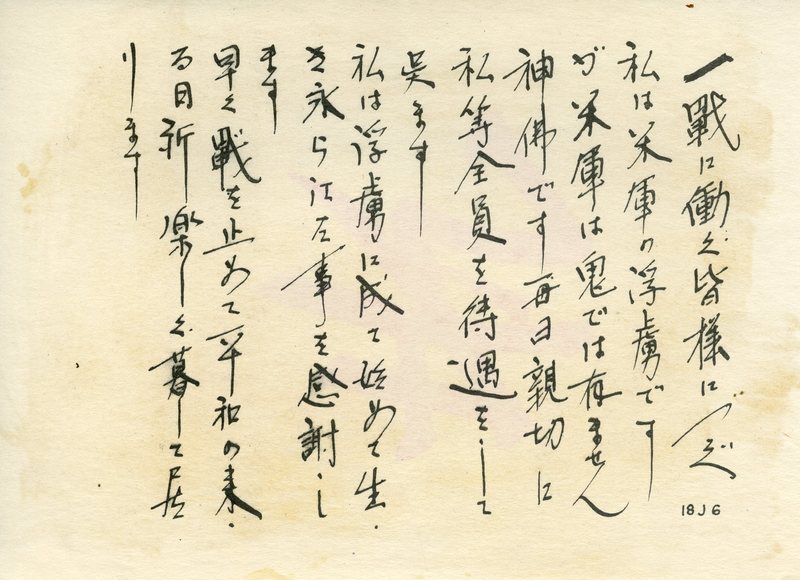 一戰に働く皆様に
私は米軍の浮虜です
が米軍は鬼では有ません
神佛です毎日親切に
私等全員を待遇をして
呉ます
私は浮虜に成て始めて生.
き永らえた事を感謝し
ます
早く戰を止めて平和の来.
る日祈楽しく暮して居
ります
18J6